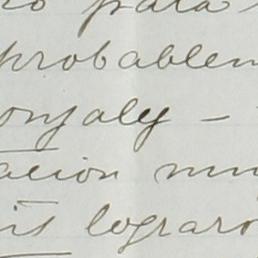 ro para
probablem
onzaly -
acion mu
is lograro